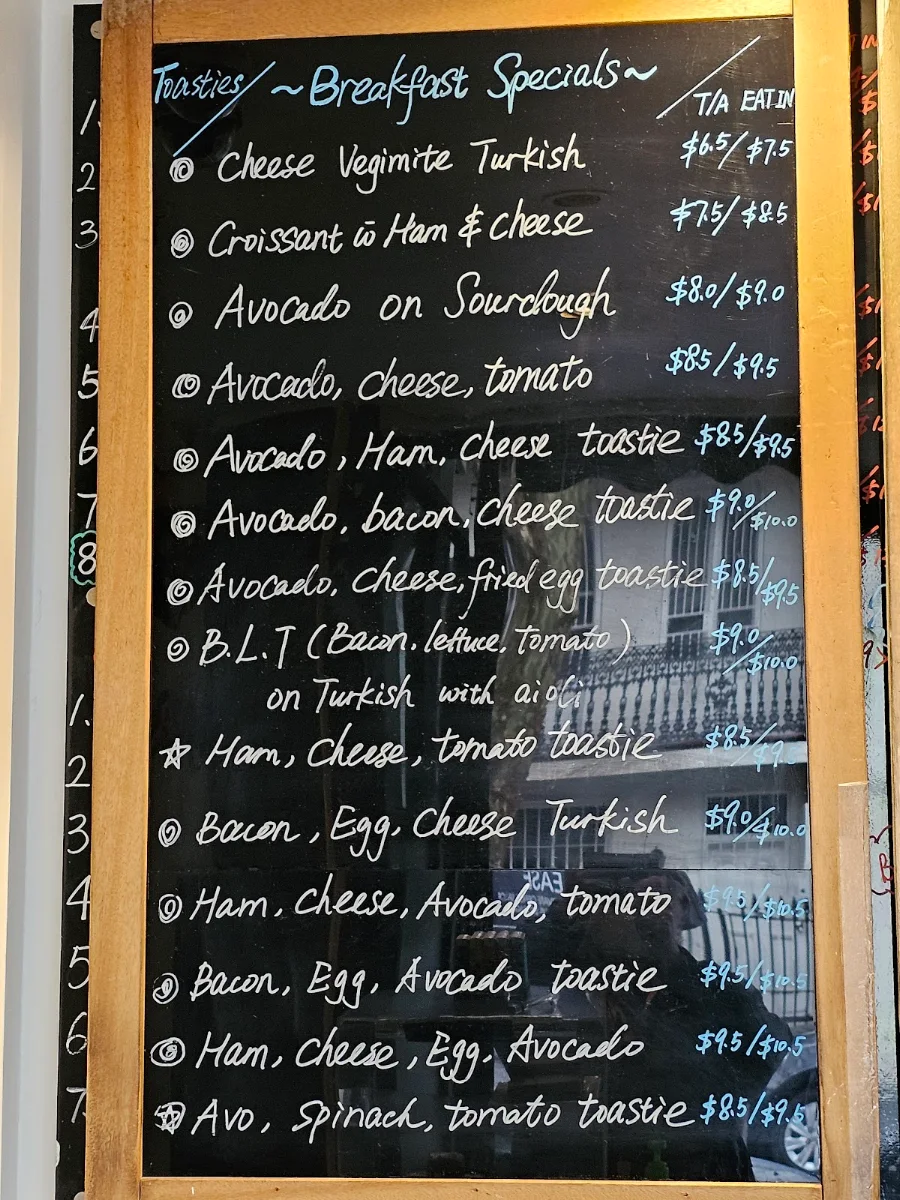 Toasties / ~Breakfast Specials~
T/A EAT IN
Cheese Vegimite Turkish $6.5/$7.5
Croissant w̄ Ham & Cheese $7.5/$8.5
Avocado on Sourdough $8.0/$9.0
Avocado, cheese, tomato $8.5/$9.5
Avocado, Ham, Cheese toastie $8.5/$9.5
Avocado, bacon, cheese toastie $9.0/$10.0
Avocado, Cheese, fried egg toastie $8.5/$9.5
B.L.T (Bacon, lettuce, tomato) $9.0/$10.0
on Turkish with aioli
Ham, Cheese, tomato toastie $8.5/
Bacon, Egg, Cheese Turkish $9.0/$10.0
Ham, Cheese, Avocado, tomato $9.5/$10.5
Bacon, Egg, Avocado toastie $9.5/$10.5
Ham, Cheese, Egg, Avocado $9.5/$10.5
Avo, Spinach, tomato toastie $8.5/$9.5
1.
2
3
4
5
6
7
8
1.
2
3
4
5
6
7